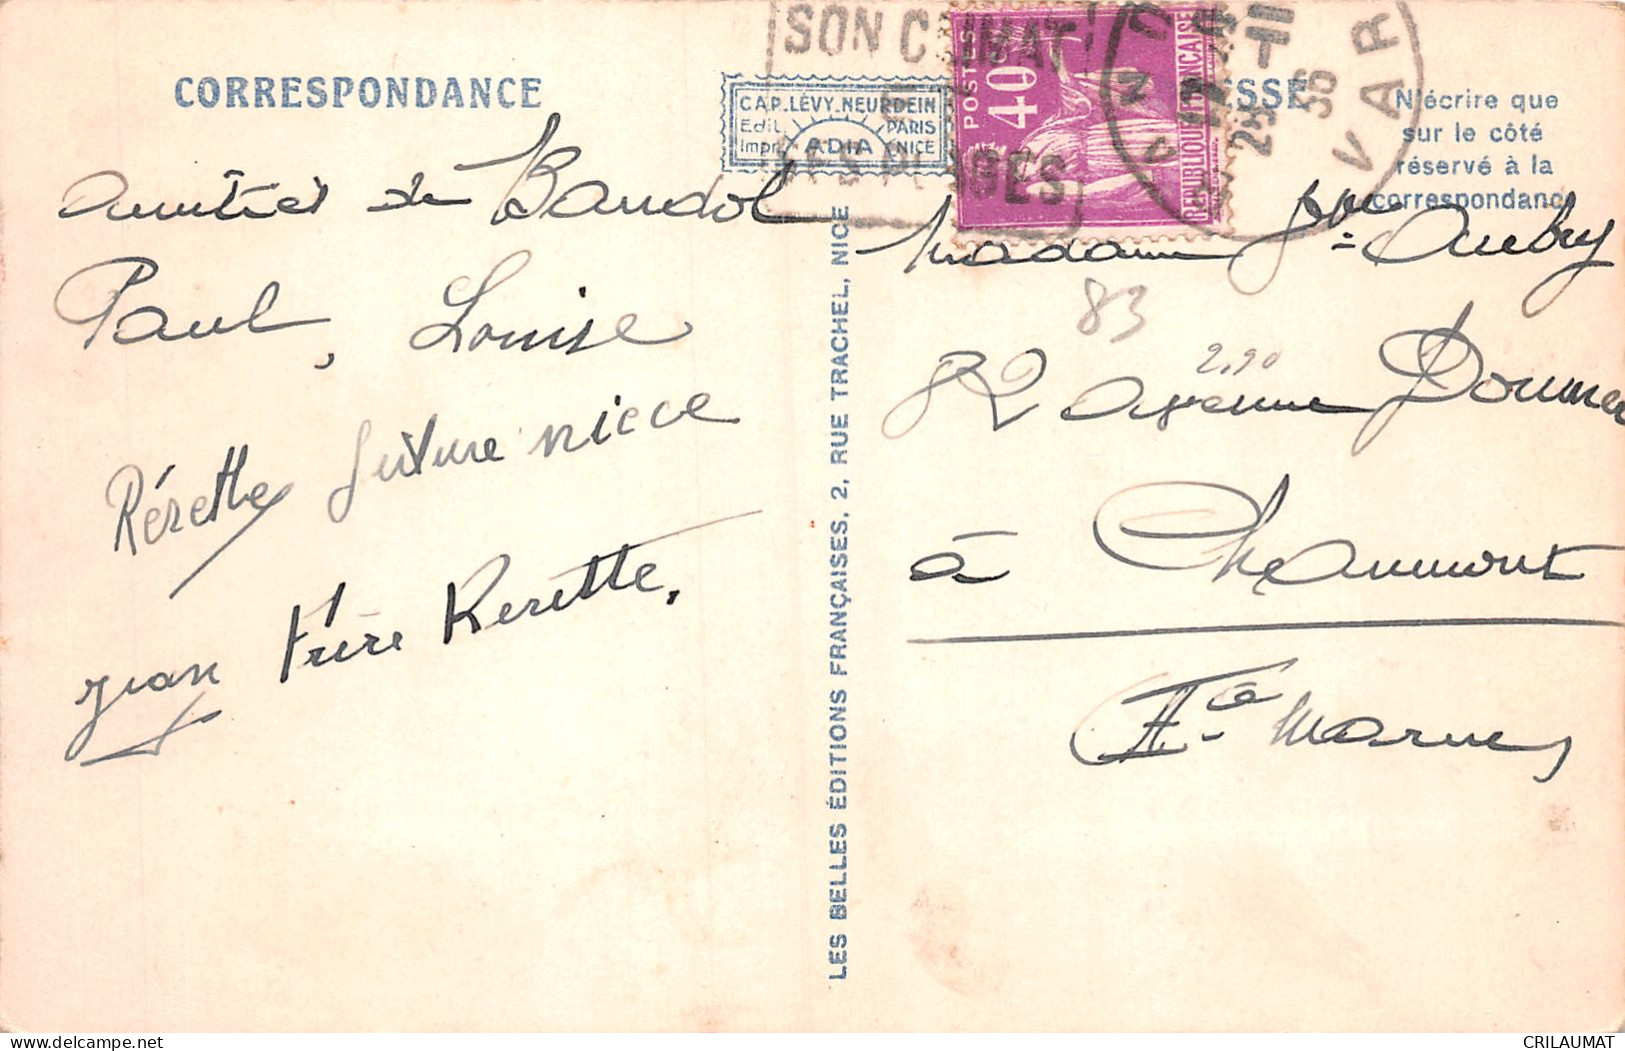 CORRESPONDANCE
Amitiés de Bandol
Paul, Louise
Rérette future niece
jean frère Rerette.
CAP. LÉVY. NEURDEIN
Edit. PARIS
Impr. ADIA NICE
LES BELLES ÉDITIONS FRANÇAISES, 2, RUE TRACHEL, NICE
SON CLIMAT
SES PLAGES
POSTES
40c
REPUBLIQUE FRANÇAISE
VAR
36
ESSE
N'écrire que
sur le côté
réservé à la
correspondance
Madame Vve Aubry
83
2,90
82 avenue Doumer
à Chaumont
Hte Marne
CRILAUMAT